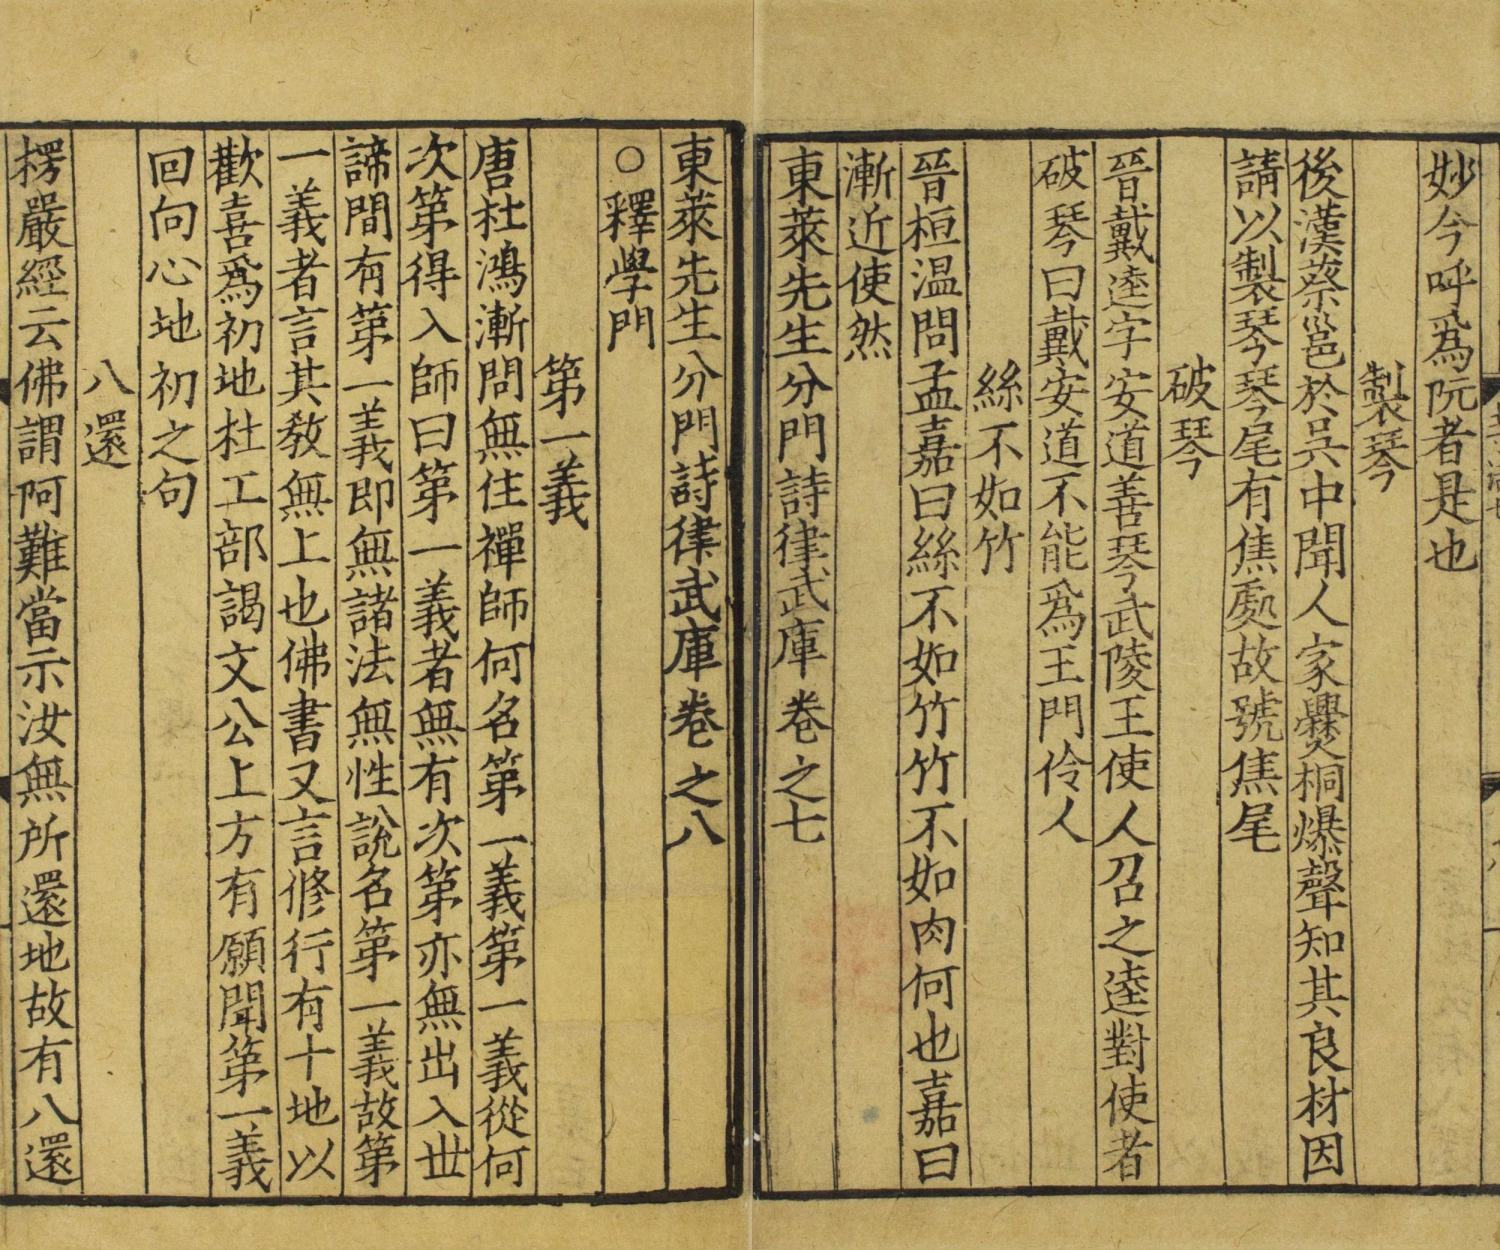 妙今呼爲阮者是也
製琴
後漢蔡邕於吳中聞人家爨桐爆聲知其良材因
請以製琴琴尾有焦處故號焦尾
破琴
晉戴逵字安道善琴武陵王使人召之逵對使者
破琴曰戴安道不能爲王門伶人
絲不如竹
晉桓温問孟嘉曰絲不如竹竹不如肉何也嘉曰
漸近使然
東萊先生分門詩律武庫卷之七
東萊先生分門詩律武庫卷之八
○釋學門
第一義
唐杜鴻漸問無住禪師何名第一義第一義從何
次第得入師曰第一義者無有次第亦無出入丗
諦間有第一義即無諸法無性說名第一義故第
一義者言其敎無上也佛書又言修行有十地以
歡喜爲初地杜工部謁文公上方有願聞第一義
回向心地初之句
八還
楞嚴經云佛謂阿難當示汝無所還地故有八還